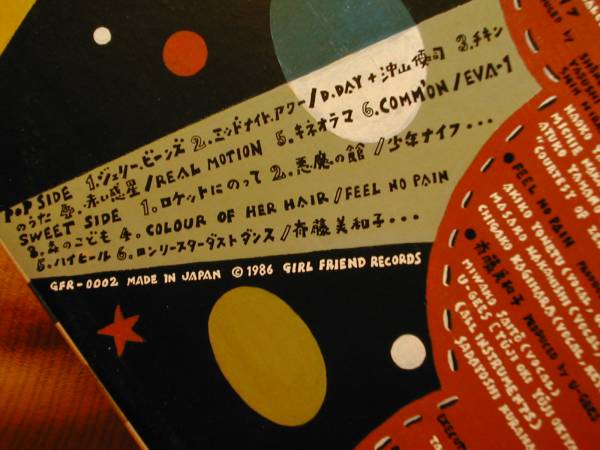 POP SIDE 1.ジェリー.ビーンズ 2.ミッドナイト.アワー/D.DAY+沖山優司 3.チキン
のうた 4.赤い惑星/REAL MOTION 5.キネオラマ 6.COMM'ON/EVA-1
SWEET SIDE 1.ロケットにのって 2.悪魔の館/少年ナイフ...
3.森のこども 4.COLOUR OF HER HAIR/FEEL NO PAIN
5.ハイヒール 6.ロンリースターダストダンス/斉藤美和子...
GFR-0002 MADE IN JAPAN © 1986 GIRL FRIEND RECORDS
BY
YASUSHI
SHIN
NAOKO
MICHIE
ATUKO YAMAN
COURTESY OF
●FEEL NO PAIN
AKIKO YONETU (VOCAL
MASAKO NAKANISHI (VOCAL
CHIGAKO KOGIHARA (VOCAL, KEY
●斉藤美和子 PRODUCED BY U-GRES
MIWAKO SAITO (VOCAL)
U-GRES [YŪJI OKI
(ALL INSTRUMENTS)
SADAYOSHI
EXECUT